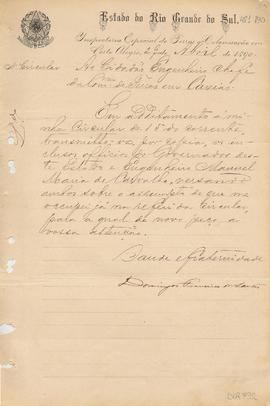 Estado do Rio Grande do Sul.
Inspectoria Especial de Terras e Colonisação em
Porto Alegre, de Abril de 1890.
Circular Ao Cidadão Engenheiro Chefe
da Com de Terras em Caxias
Em additamento á mi-
nha Circular de 15 do corrente,
transmitto-vos por copia, os in-
clusos officios do Governador des-
te Estado e Engenheiro Manuel
Maria de Carvalho, versando
ambos sobre o assumpto de que me
occupei já na referida Circular,
para a qual de novo peço a
vossa attenção.
Saude e Fraternidade
Domingos